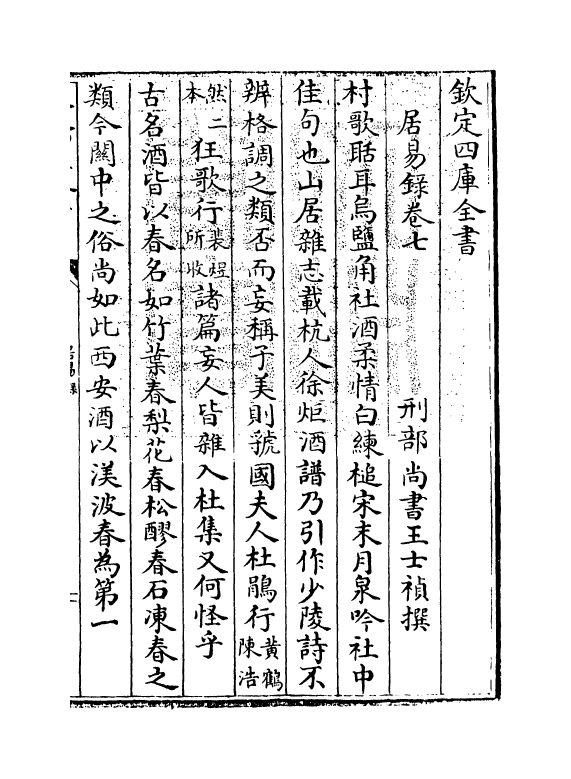 欽定四庫全書
居易錄卷七 刑部尚書王士禎撰
村歌聒耳烏鹽角社酒柔情白練槌宋末月泉吟社中
佳句也山居雜志載杭人徐炬酒譜乃引作少陵詩不
辨格調之類否而妄稱子美則虢國夫人杜鵑行黃鶴陳浩
然二本狂歌行裴煜所收諸篇妄人皆雜入杜集又何怪乎
古名酒皆以春名如竹葉春梨花春松醪春石凍春之
類今關中之俗尚如此西安酒以渼波春為第一